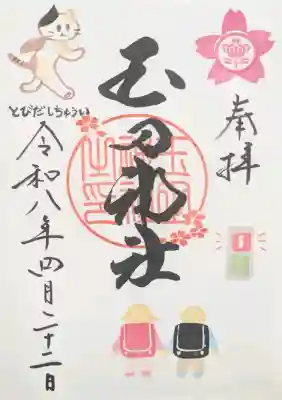 奉拝
玉田神社
とびだしちゅうい
令和八年四月二十二日